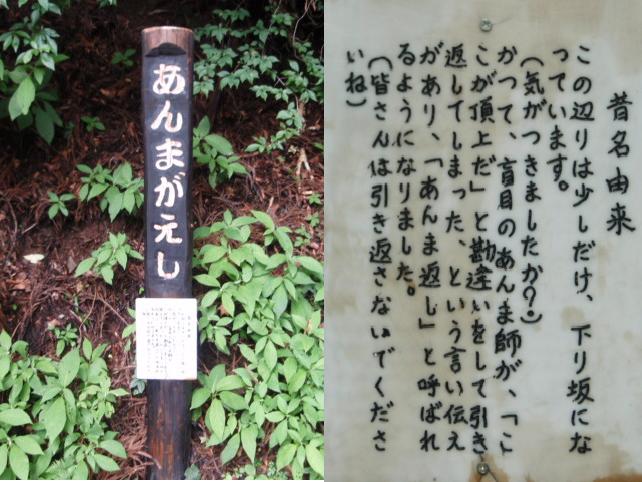 あんまがえし
昔名由来
この辺りは少しだけ、下り坂にな
っています。
(気がつきましたか?)
かつて、盲目のあんま師が、「こ
こが頂上だ」と勘違いをして引き
返してしまった、という言い伝え
があり、「あんま返し」と呼ばれ
るようになりました。
(皆さんは引き返さないでくださ
いね)